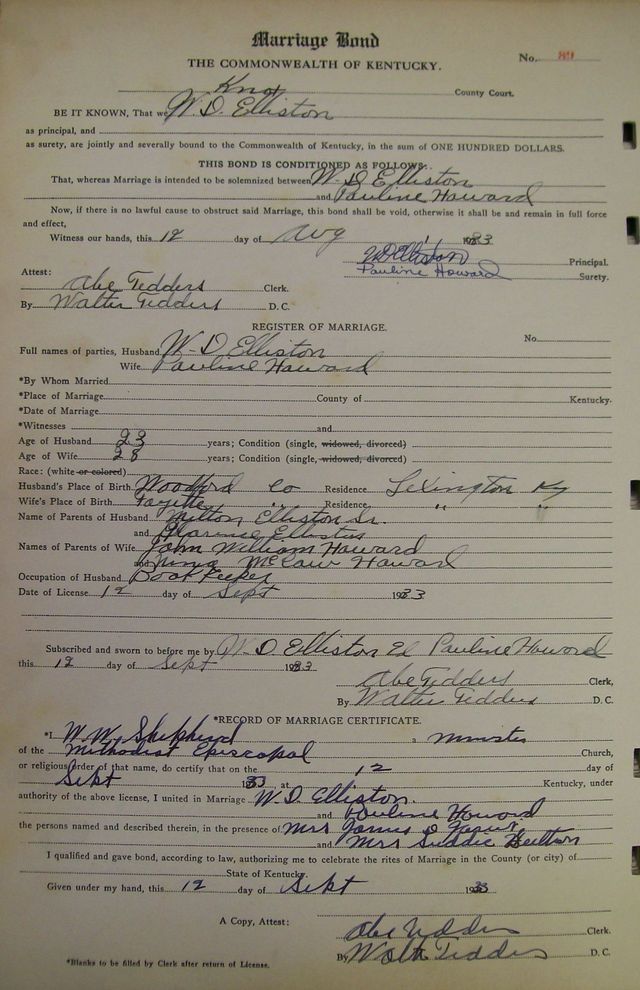 Marriage Bond
THE COMMONWEALTH OF KENTUCKY.
No. 89
Knox County Court.
BE IT KNOWN, That we W. D. Elliston
as principal, and
as surety, are jointly and severally bound to the Commonwealth of Kentucky, in the sum of ONE HUNDRED DOLLARS.
THIS BOND IS CONDITIONED AS FOLLOWS:
That, whereas Marriage is intended to be solemnized between W D Elliston
and Pauline Howard
Now, if there is no lawful cause to obstruct said Marriage, this bond shall be void, otherwise it shall be and remain in full force
and effect,
Witness our hands, this 12 day of Aug 1933
W D Elliston Principal.
Pauline Howard Surety.
Attest:
Abe Tedders Clerk.
By Walter Tedders D. C.
REGISTER OF MARRIAGE.
No.
Full names of parties, Husband W. D Elliston
Wife Pauline Howard
*By Whom Married
*Place of Marriage County of Kentucky.
*Date of Marriage
*Witnesses and
Age of Husband 23 years; Condition (single, widowed, divorced)
Age of Wife 28 years; Condition (single, widowed, divorced)
Race: (white or colored)
Husband's Place of Birth Woodford Co Residence Lexington Ky
Wife's Place of Birth Fayette " Residence " "
Name of Parents of Husband Milton Elliston Sr.
and Elliston
Names of Parents of Wife John William Howard
and Howard
Occupation of Husband Book Keeper
Date of License 12 day of Sept 1933
Subscribed and sworn to before me by W. D. Elliston Ed Pauline Howard
this 12 day of Sept 1933
Abe Tedders Clerk,
By Walter Tedders D. C.
*RECORD OF MARRIAGE CERTIFICATE.
*I W. W. Shepherd a minister
of the Methodist Episcopal Church,
or religious order of that name, do certify that on the 12 day of
Sept 1933 at Kentucky, under
authority of the above license, I united in Marriage W. D. Elliston.
and Pauline Howard
the persons named and described therein, in the presence of Mrs James
and Mrs
I qualified and gave bond, according to law, authorizing me to celebrate the rites of Marriage in the County (or city) of
State of Kentucky.
Given under my hand, this 12 day of Sept 1933
A Copy, Attest:
Abe Tedders Clerk.
By Walter Tedders D. C.
*Blanks to be filled by Clerk after return of License.